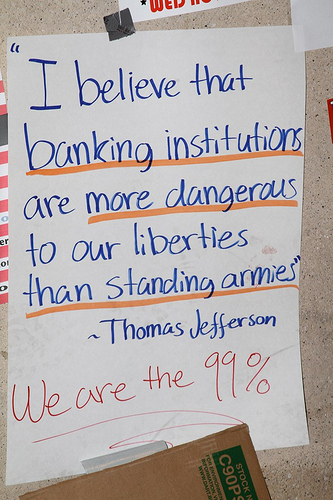 "I believe that
banking institutions
are more dangerous
to our liberties
than standing armies"
~Thomas Jefferson
We are the 99%
STOCK
C90P